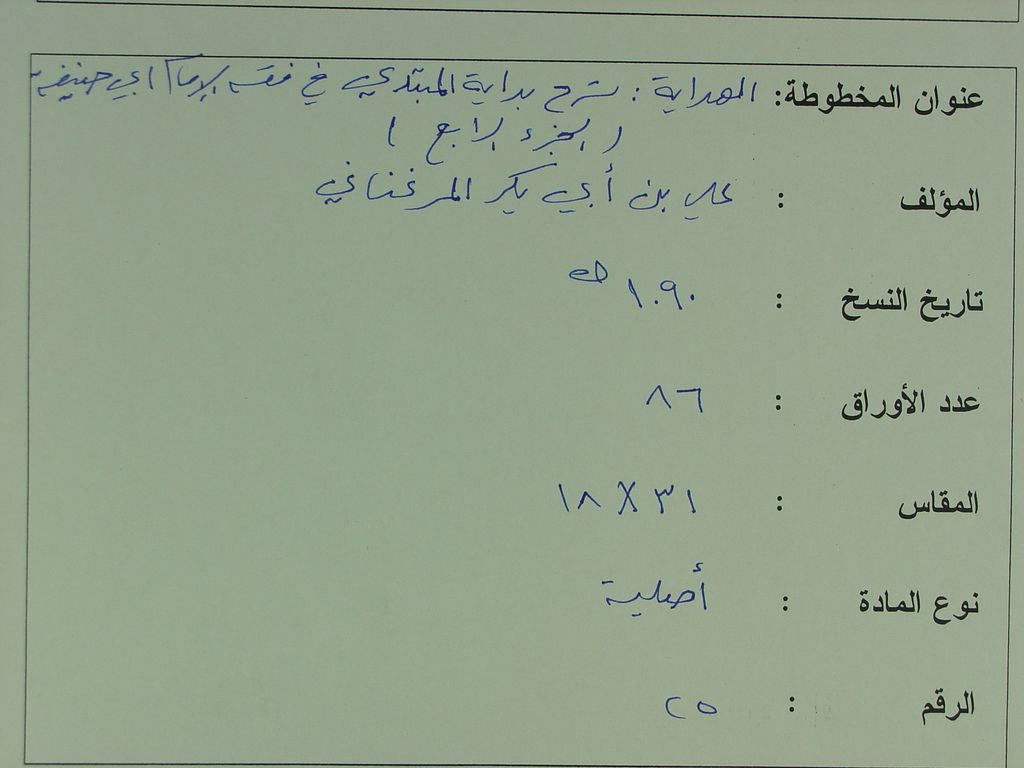 عنوان المخطوطة: الهداية : شرح بداية المبتدي في فقه الإمام ابي حنيفة
( الجزء الرابع )
المؤلف : علي بن أبي بكر المرغناني
تاريخ النسخ : ١٠٩٠ هـ
عدد الأوراق : ٨٦
المقاس : ٣١ X ١٨
نوع المادة : أصلية
الرقم : ٢٥